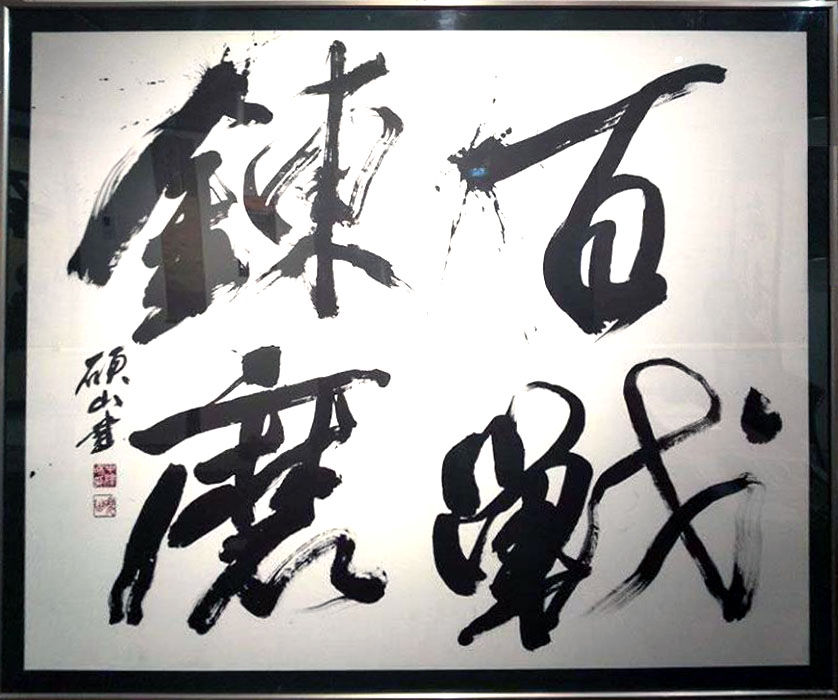 百戦
錬磨
碩山書